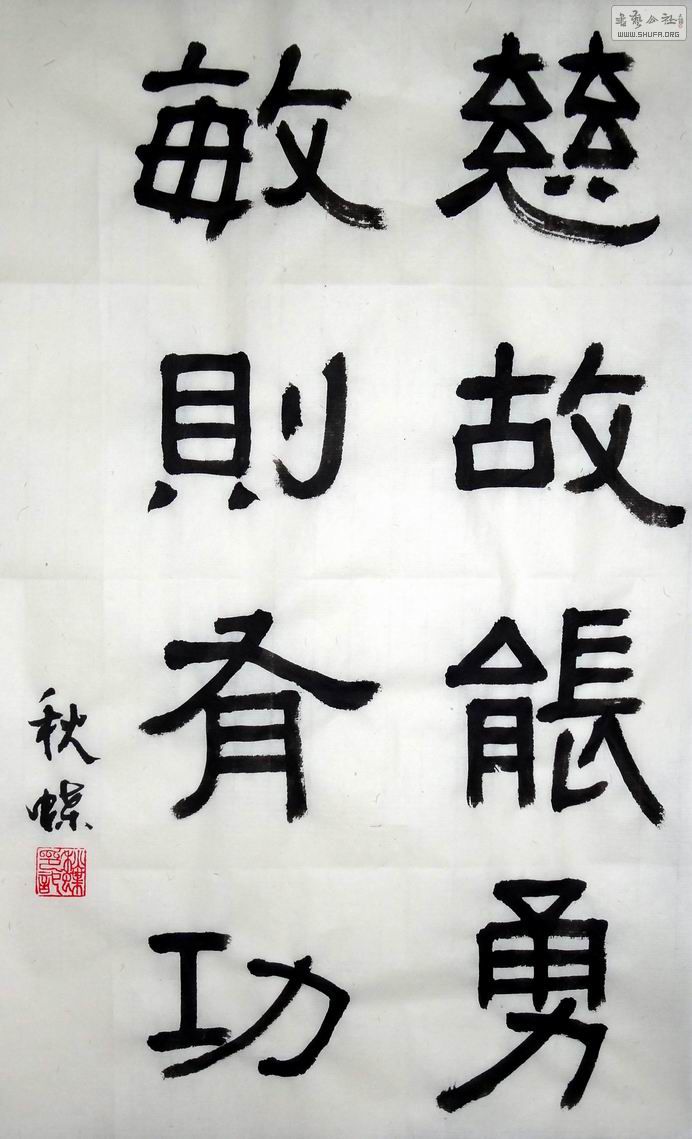 慈故能勇
敏則有功
秋蝶
WWW.SHUFA.ORG